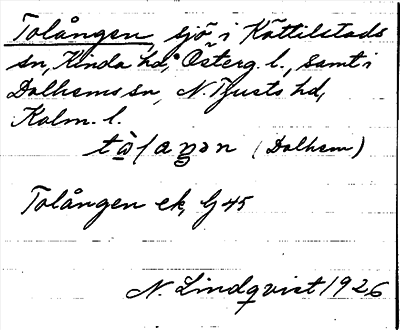 Tolången, sjö i Kättilstads
sn, Kinda hd, Österg. l., samt i
Dalhems sn, N. Tjusts hd,
Kalm. l.
(Dalhem)
Tolången ek. G 45
N. Lindqvist 1926